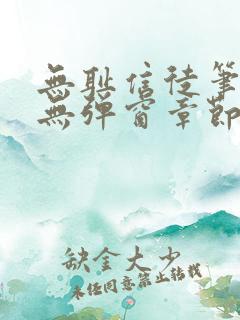 無耻信徒筆
無彈窗章節
缺金大少
未經同意禁止轉載